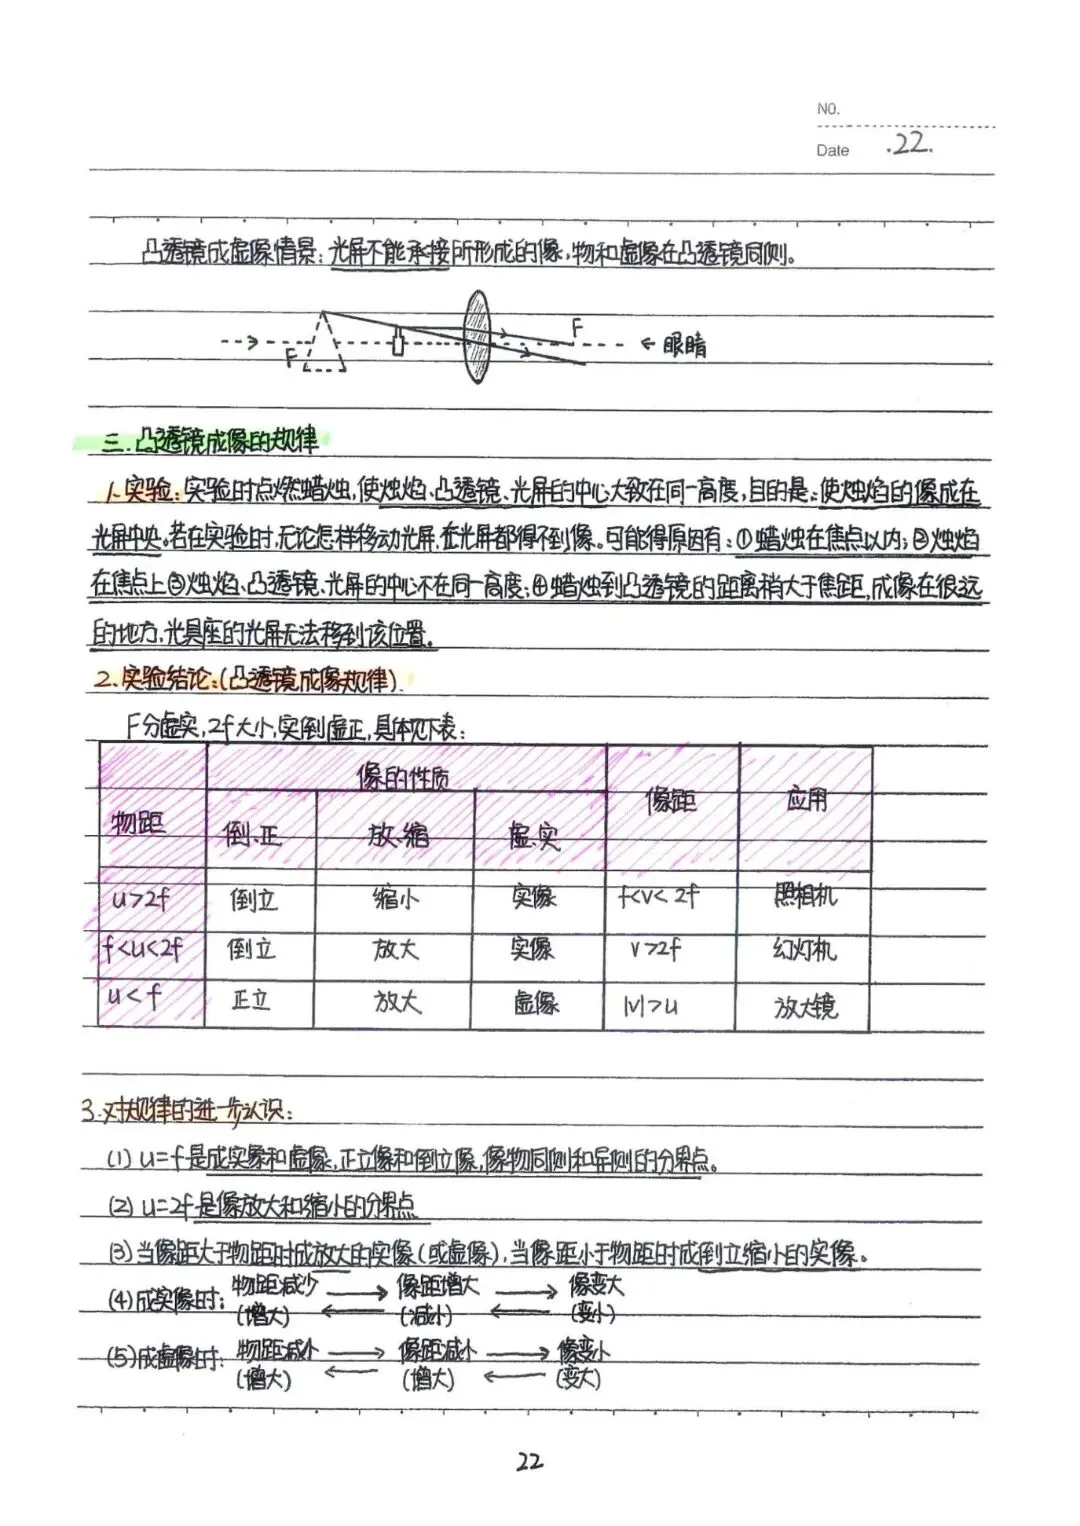 NO.
Date .22.
凸透镜成虚像情景：光屏不能承接所形成的像，物和虚像在凸透镜同侧。
F
F
←眼睛
三.凸透镜成像的规律
1.实验：实验时点燃蜡烛，使烛焰、凸透镜、光屏的中心大致在同一高度，目的是：使烛焰的像成在
光屏中央。若在实验时，无论怎样移动光屏，在光屏都得不到像。可能得原因有：①蜡烛在焦点以内；②烛焰
在焦点上③烛焰、凸透镜、光屏的中心不在同一高度；④蜡烛到凸透镜的距离稍大于焦距，成像在很远
的地方，光具座的光屏无法移到该位置。
2.实验结论：(凸透镜成像规律).
F分虚实，2f大小，实倒虚正，具体见下表：
物距 像的性质 像距 应用
倒.正 放.缩 虚.实
u>2f 倒立 缩小 实像 f<v<2f 照相机
f<u<2f 倒立 放大 实像 v>2f 幻灯机
u<f 正立 放大 虚像 |v|>u 放大镜
3.对规律的进一步认识：
(1) u=f是成实象和虚象，正立像和倒立像，像物同侧和异侧的分界点。
(2) u=2f是像放大和缩小的分界点
(3)当像距大于物距时成放大的实像(或虚像)，当像距小于物距时成倒立缩小的实像。
(4)成实像时：物距减少 → 像距增大 → 像变大
(增大) ← (减小) ← (变小)
(5)成虚像时：物距减小 → 像距减小 → 像变小
(增大) ← (增大) ← (变大)
22